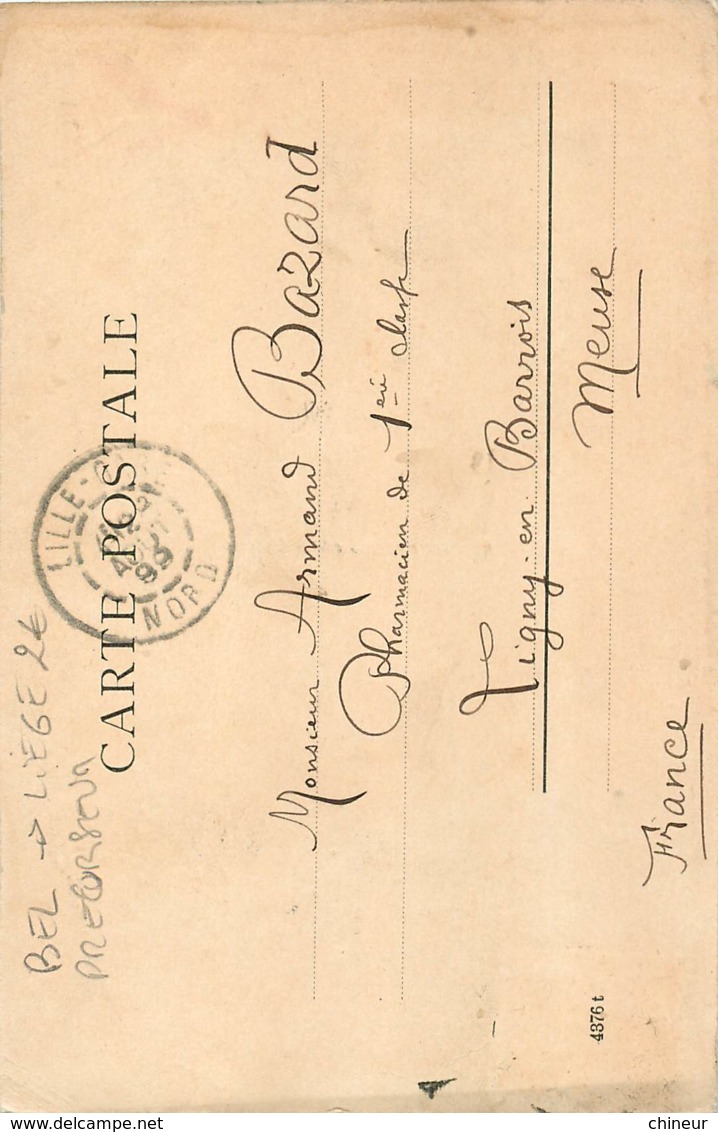 BEL → LIEGE 2€
PRECURSEUR
CARTE POSTALE
LILLE-GARE
99
NORD
Monsieur Armand Bazard
Pharmacien de 1ère classe
Ligny-en Barrois
Meuse
France
4376 t
chineur
delcampe.net